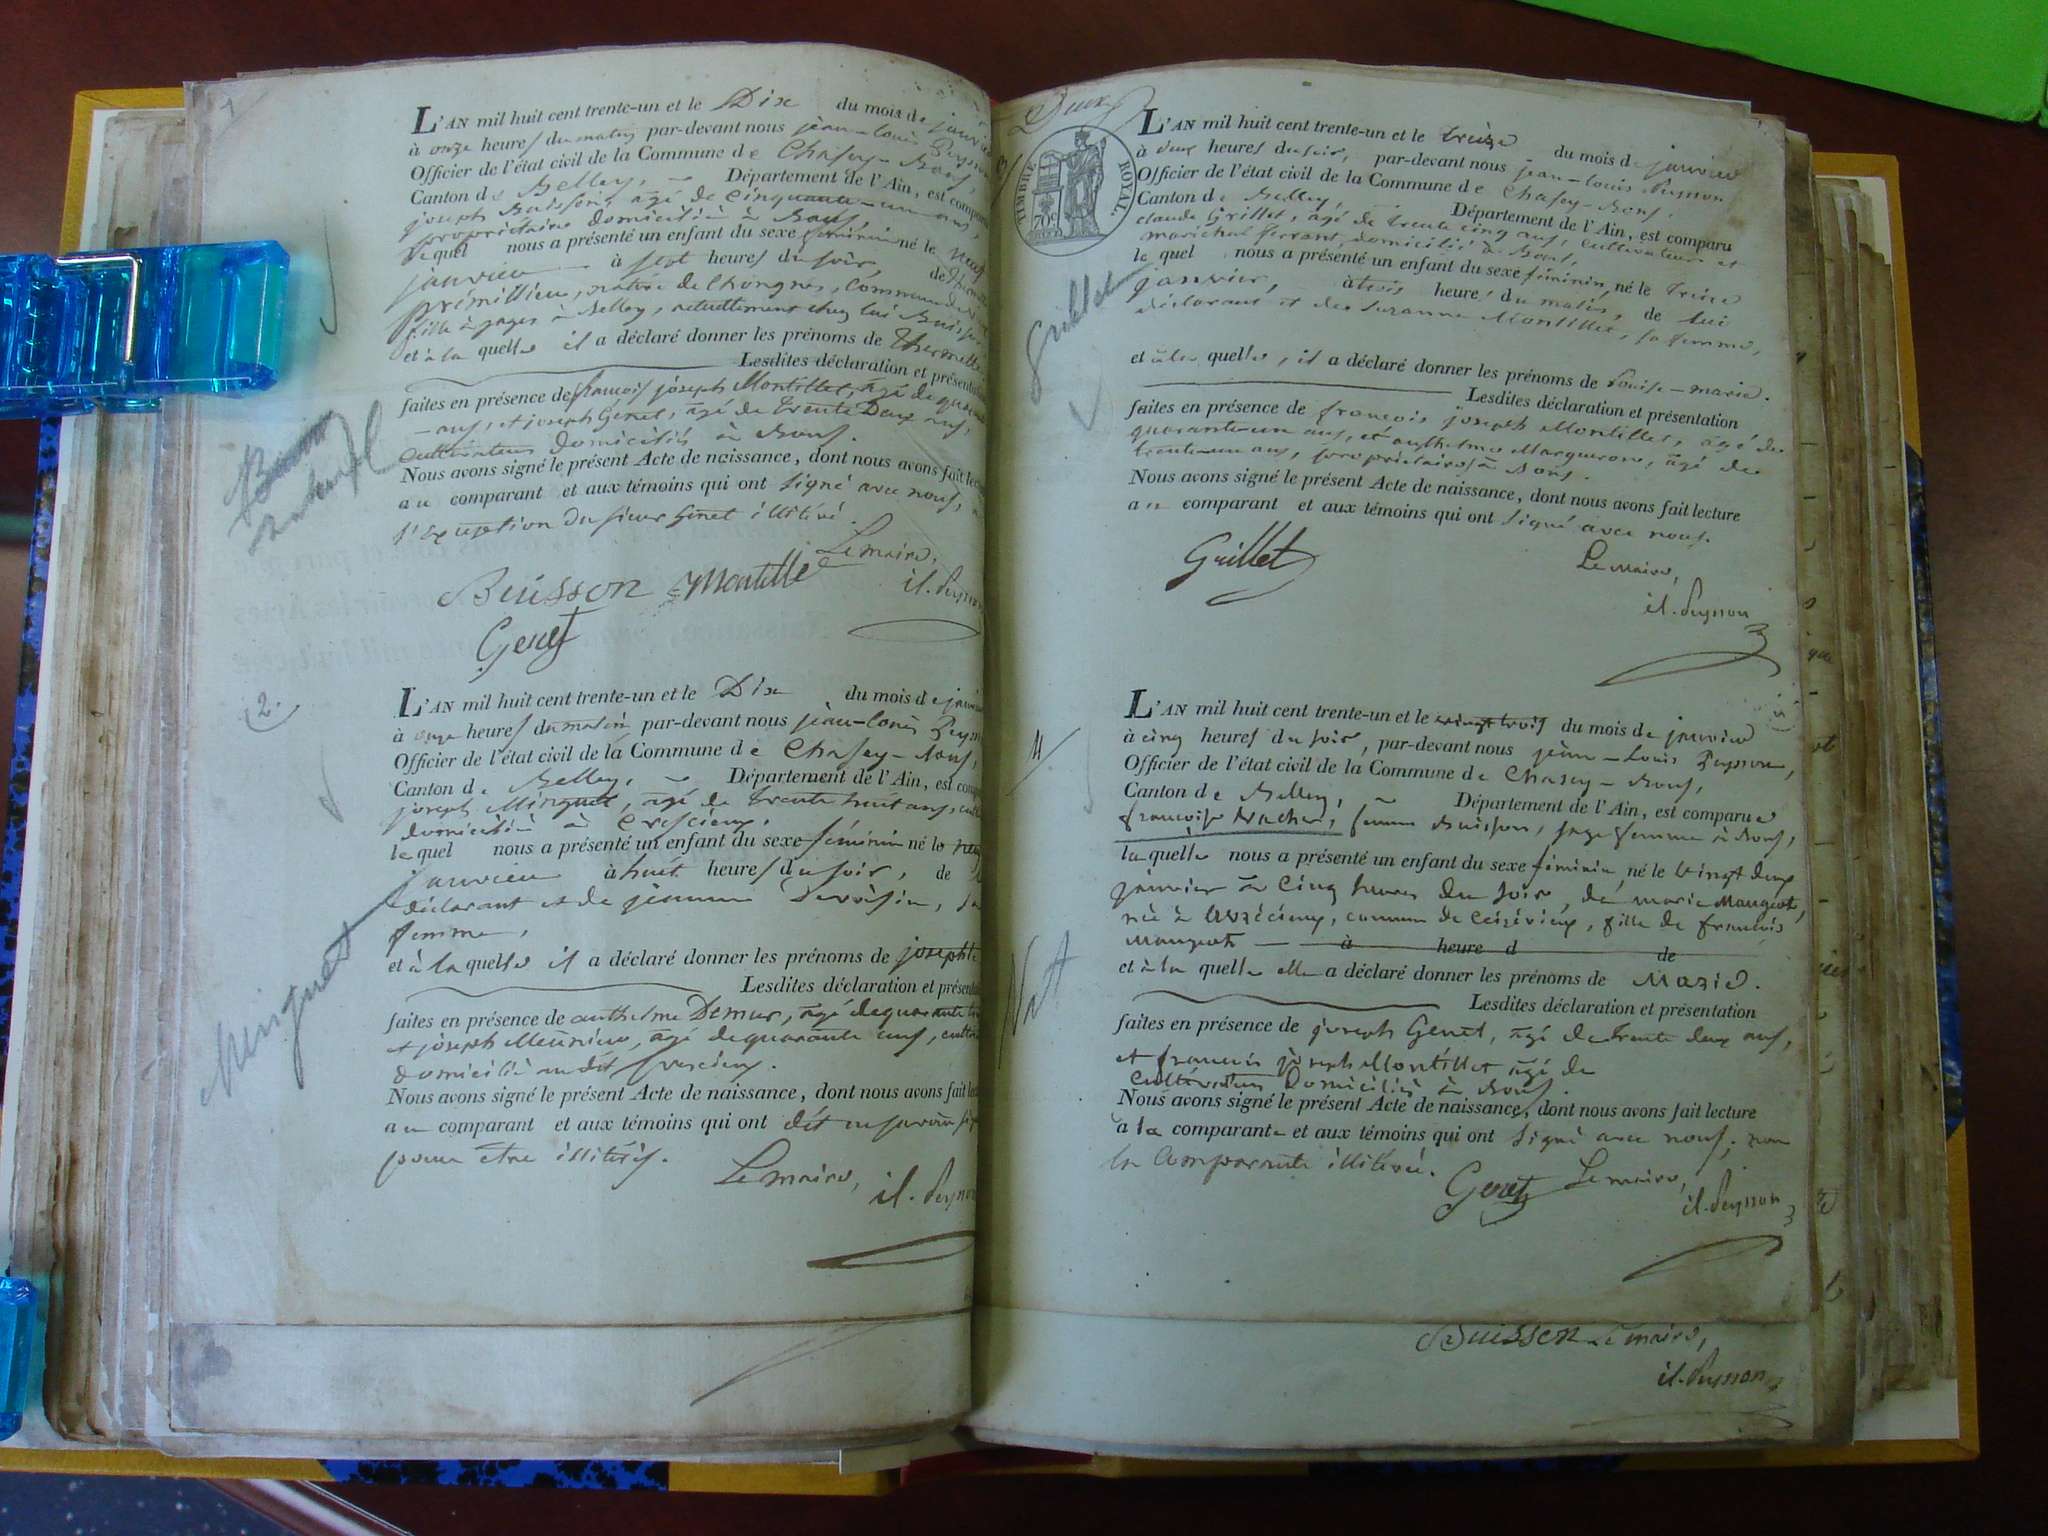 1
L'AN mil huit cent trente-un et le Dix du mois de janvier
à onze heures du matin par-devant nous jean-louis Peysson
Officier de l'état civil de la Commune de Chasey-Bons,
Canton de Belley, Département de l'Ain, est comparu
joseph Buisson, agé de cinquante-un ans,
propriétaire domicilié à Bons,
lequel nous a présenté un enfant du sexe féminin né le neuf
janvier à sept heures du soir de
Prémillieu, native de Chongnes, Commune de
fille à gages à Belley, actuellement chez lui Buisson
et à la quelle il a déclaré donner les prénoms de
Lesdites déclaration et présentation
faites en présence de françois joseph Montillet, agé de quarante
ans, et joseph Genet, agé de trente Deux ans,
cultivateurs domiciliés à Bons.
Nous avons signé le présent Acte de naissance, dont nous avons fait lecture
au comparant et aux témoins qui ont signé avec nous, à
l'exception du sieur Genet illitéré.
Le maire,
Buisson Montille jl. Peysson
Genet
2.
L'AN mil huit cent trente-un et le Dix du mois de janvier
à onze heures du matin par-devant nous jean-louis Peysson
Officier de l'état civil de la Commune de Chasey-Bons,
Canton de Belley, Département de l'Ain, est comparu
joseph Minguet, agé de trente huit ans,
domicilié à Crescieux,
lequel nous a présenté un enfant du sexe féminin né le neuf
janvier à huit heures du soir, de
déclarant et de jeanne sa
femme,
et à la quelle il a déclaré donner les prénoms de josephte
Lesdites déclaration et présentation
faites en présence de anthelme Demur, agé de quarante
et joseph Meunier, agé de quarante ans,
domicilié audit
Nous avons signé le présent Acte de naissance, dont nous avons fait lecture
au comparant et aux témoins qui ont dit ne savoir signer
pour être illitérés.
Le maire,
jl. Peysson
Minguet
Deux
TIMBRE ROYAL.
70c
3
L'AN mil huit cent trente-un et le treize du mois de janvier
à deux heures du soir, par-devant nous jean-louis Peysson
Officier de l'état civil de la Commune de Chasey-Bons,
Canton de Belley, Département de l'Ain, est comparu
claude Grillet, agé de trente cinq ans, cultivateur et
maréchal ferrant, domicilié à Bons,
lequel nous a présenté un enfant du sexe féminin, né le treize
janvier, à trois heures du matin, de lui
déclarant et de Suzanne Montillet, sa femme,
et à la quelle, il a déclaré donner les prénoms de Louise-marie.
Lesdites déclaration et présentation
faites en présence de françois joseph Montillet, agé de
quarante-un ans, et anthelme Margueron, agé de
trente-un ans, propriétaires à Bons.
Nous avons signé le présent Acte de naissance, dont nous avons fait lecture
au comparant et aux témoins qui ont signé avec nous.
Grillet Le maire,
jl. Peysson
Grillet
4
L'AN mil huit cent trente-un et le vingt trois du mois de janvier
à cinq heures du soir, par-devant nous jean-Louis Peysson,
Officier de l'état civil de la Commune de Chasey-Bons,
Canton de Belley, Département de l'Ain, est comparue
françoise femme Buisson, sage femme à Bons,
laquelle nous a présenté un enfant du sexe féminin, né le vingt deux
janvier à cinq heures du soir, de marie Maugeot,
née à commune de fille de françois
Maugeot à heure d de
et à la quelle elle a déclaré donner les prénoms de Marie.
Lesdites déclaration et présentation
faites en présence de joseph Genet, agé de trente deux ans,
et françois joseph Montillet agé de
cultivateurs domiciliés à Bons.
Nous avons signé le présent Acte de naissance, dont nous avons fait lecture
à la comparante et aux témoins qui ont signé avec nous, non
la Comparante illitérée.
Genet Le maire,
jl. Peysson
Buisson Le maire,
jl. Peysson